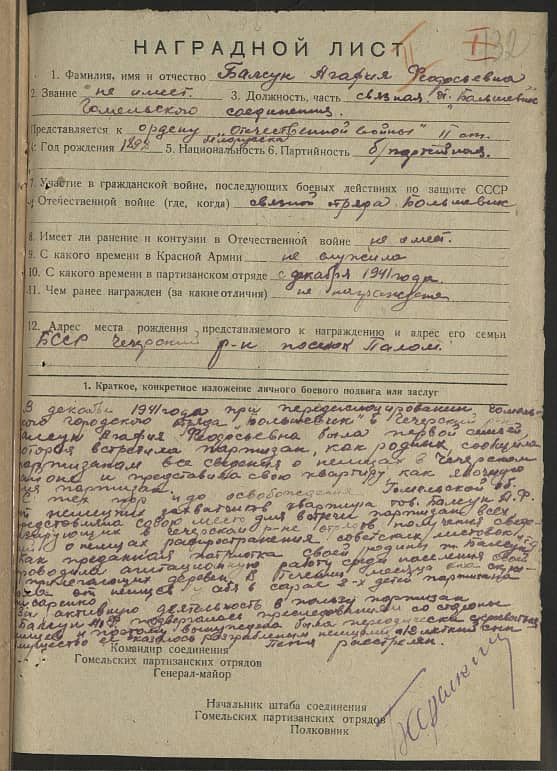 II 132
НАГРАДНОЙ ЛИСТ
1. Фамилия, имя и отчество Балсун Агафия Феодосьевна
2. Звание не имеет. 3. Должность, часть связная от. Большевик
Гомельского соединения.
Представляется к ордену „Отечественной войны" II ст.
4. Год рождения 1892 5. Национальность белоруска 6. Партийность б/партийная.
7. Участие в гражданской войне, последующих боевых действиях по защите СССР
и Отечественной войне (где, когда) связной отряда Большевик
8. Имеет ли ранение и контузии в Отечественной войне не имеет.
9. С какого времени в Красной Армии не служила
10. С какого времени в партизанском отряде с декабря 1941 года.
11. Чем ранее награжден (за какие отличия) не награждена
12. Адрес места рождения представляемого к награждению и адрес его семьи
БССР Чечерский р-н поселок Палом.
1. Краткое, конкретное изложение личного боевого подвига или заслуг
В декабре 1941 года при передислоцировании Гомель-
ского городского отряда „Большевик" в Чечерский
Балсун Агафия Феодосьевна была первой
которая встретила партизан, как родных сообщила
партизанам все сведения о немцах в Чечерском
районе и представила свою квартиру как явочную
для партизан.
С тех пор и до освобождения Гомельской об.
от немецких захватчиков квартира тов. Балсун А.Ф.
представляла собою место для встречи партизан всех
в Чечерском р-не отрядов получения сведе-
о немцах распространения советских листовок
Как преданная патриотка своей родины т. Балсун
проводила агитационную работу среди населения своей
прилегающих деревень. В течении месяца она скры-
вала от немцев у себя в сарае 2-х детей партизана
Писаренко
За активную деятельность в пользу партизан
Балсун А.Ф. подвергалась преследованиям со стороны
немцев и поэтому вынуждена была периодически скрываться
имущество её казалось разграбленным немцами, а 12 летний сын
Петя расстрелян.
Командир соединения
Гомельских партизанских отрядов
Генерал-майор
Начальник штаба соединения
Гомельских партизанских отрядов
Полковник